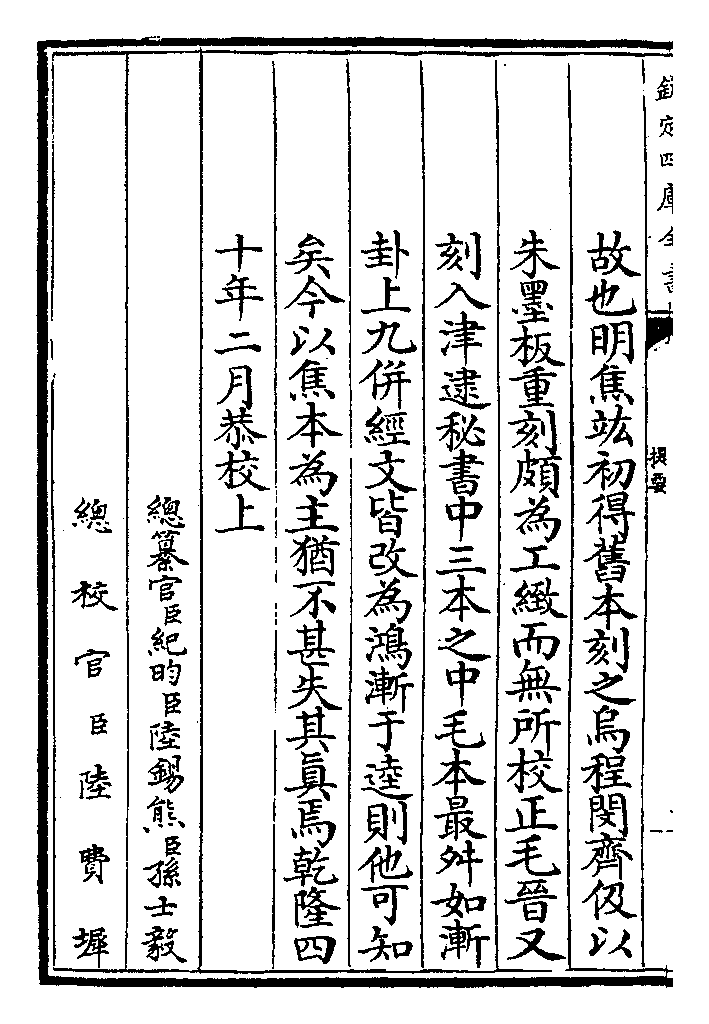 欽定四庫全書
提要
故也明焦竑初得舊本刻之烏程閔齊伋以
朱墨板重刻頗為工緻而無所校正毛晉又
刻入津逮秘書中三本之中毛本最舛如漸
卦上九併經文皆改為鴻漸于逵則他可知
矣今以焦本為主猶不甚失其真焉乾隆四
十年二月恭校上
總纂官臣紀昀臣陸錫熊臣孫士毅
總校官臣陸費墀